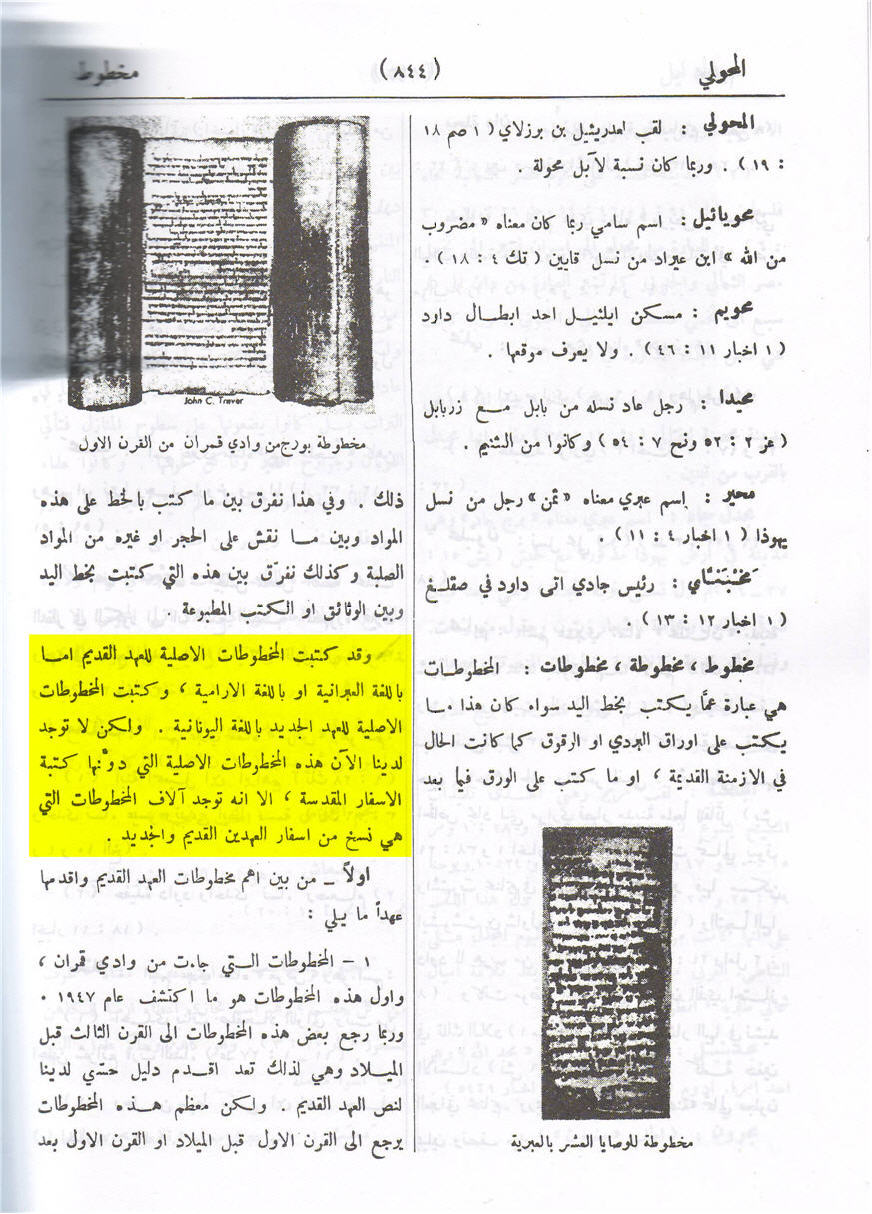 المحولي
( ٨٤٤ )
مخطوط
المحولي : لقب لعدريئيل بن برزلاي ( ١ صم ١٨
: ١٩ ) . وربما كان نسبة لآبل محولة .
محويائيل : اسم سامي ربما كان معناه « مضروب
من الله » ابن عيراد من نسل قايين ( تك ٤ : ١٨ ) .
محويم : مسكن ايلئيل احد ابطال داود
( ١ اخبار ١١ : ٤٦ ) . ولا يعرف موقعها .
محيدا : رجل عاد نسله من بابل مع زربابل
( عز ٢ : ٥٢ ونح ٧ : ٥٤ ) وكانوا من النثنيم .
محير : إسم عبري معناه « ثمن » رجل من نسل
يهوذا ( ١ اخبار ٤ : ١١ ) .
: رئيس جادي اتى داود في صقلغ
( ١ اخبار ١٢ : ١٣ ) .
مخطوط ، مخطوطة ، مخطوطات : المخطوطات
هي عبارة عمّا يكتب بخط اليد سواء كان هذا مما
يكتب على اوراق البردي او الرقوق كما كانت الحال
في الازمنة القديمة ، او ما كتب على الورق فيما بعد
مخطوطة للوصايا العشر بالعبرية
John C. Trever
مخطوطة بورج من وادي قمران من القرن الاول
ذلك . وفي هذا نفرق بين ما كتب بالخط على هذه
المواد وبين ما نقش على الحجر او غيره من المواد
الصلبة وكذلك نفرّق بين هذه التي كتبت بخط اليد
وبين الوثائق او الكتب المطبوعة .
وقد كتبت المخطوطات الاصلية للعهد القديم اما
باللغة العبرانية او باللغة الارامية ، وكتبت المخطوطات
الاصلية للعهد الجديد باللغة اليونانية . ولكن لا توجد
لدينا الآن هذه المخطوطات الاصلية التي دوّنها كتبة
الاسفار المقدسة ، الا انه توجد آلاف المخطوطات التي
هي نسخ من اسفار العهدين القديم والجديد .
اولاً – من بين اهم مخطوطات العهد القديم واقدمها
عهداً ما يلي :
١ – المخطوطات التي جاءت من وادي قمران ،
واول هذه المخطوطات هو ما اكتشف عام ١٩٤٧ .
وربما رجع بعض هذه المخطوطات الى القرن الثالث قبل
الميلاد وهي لذلك تعد اقدم دليل حسّي لدينا
لنص العهد القديم . ولكن معظم هذه المخطوطات
يرجع الى القرن الاول قبل الميلاد او القرن الاول بعد